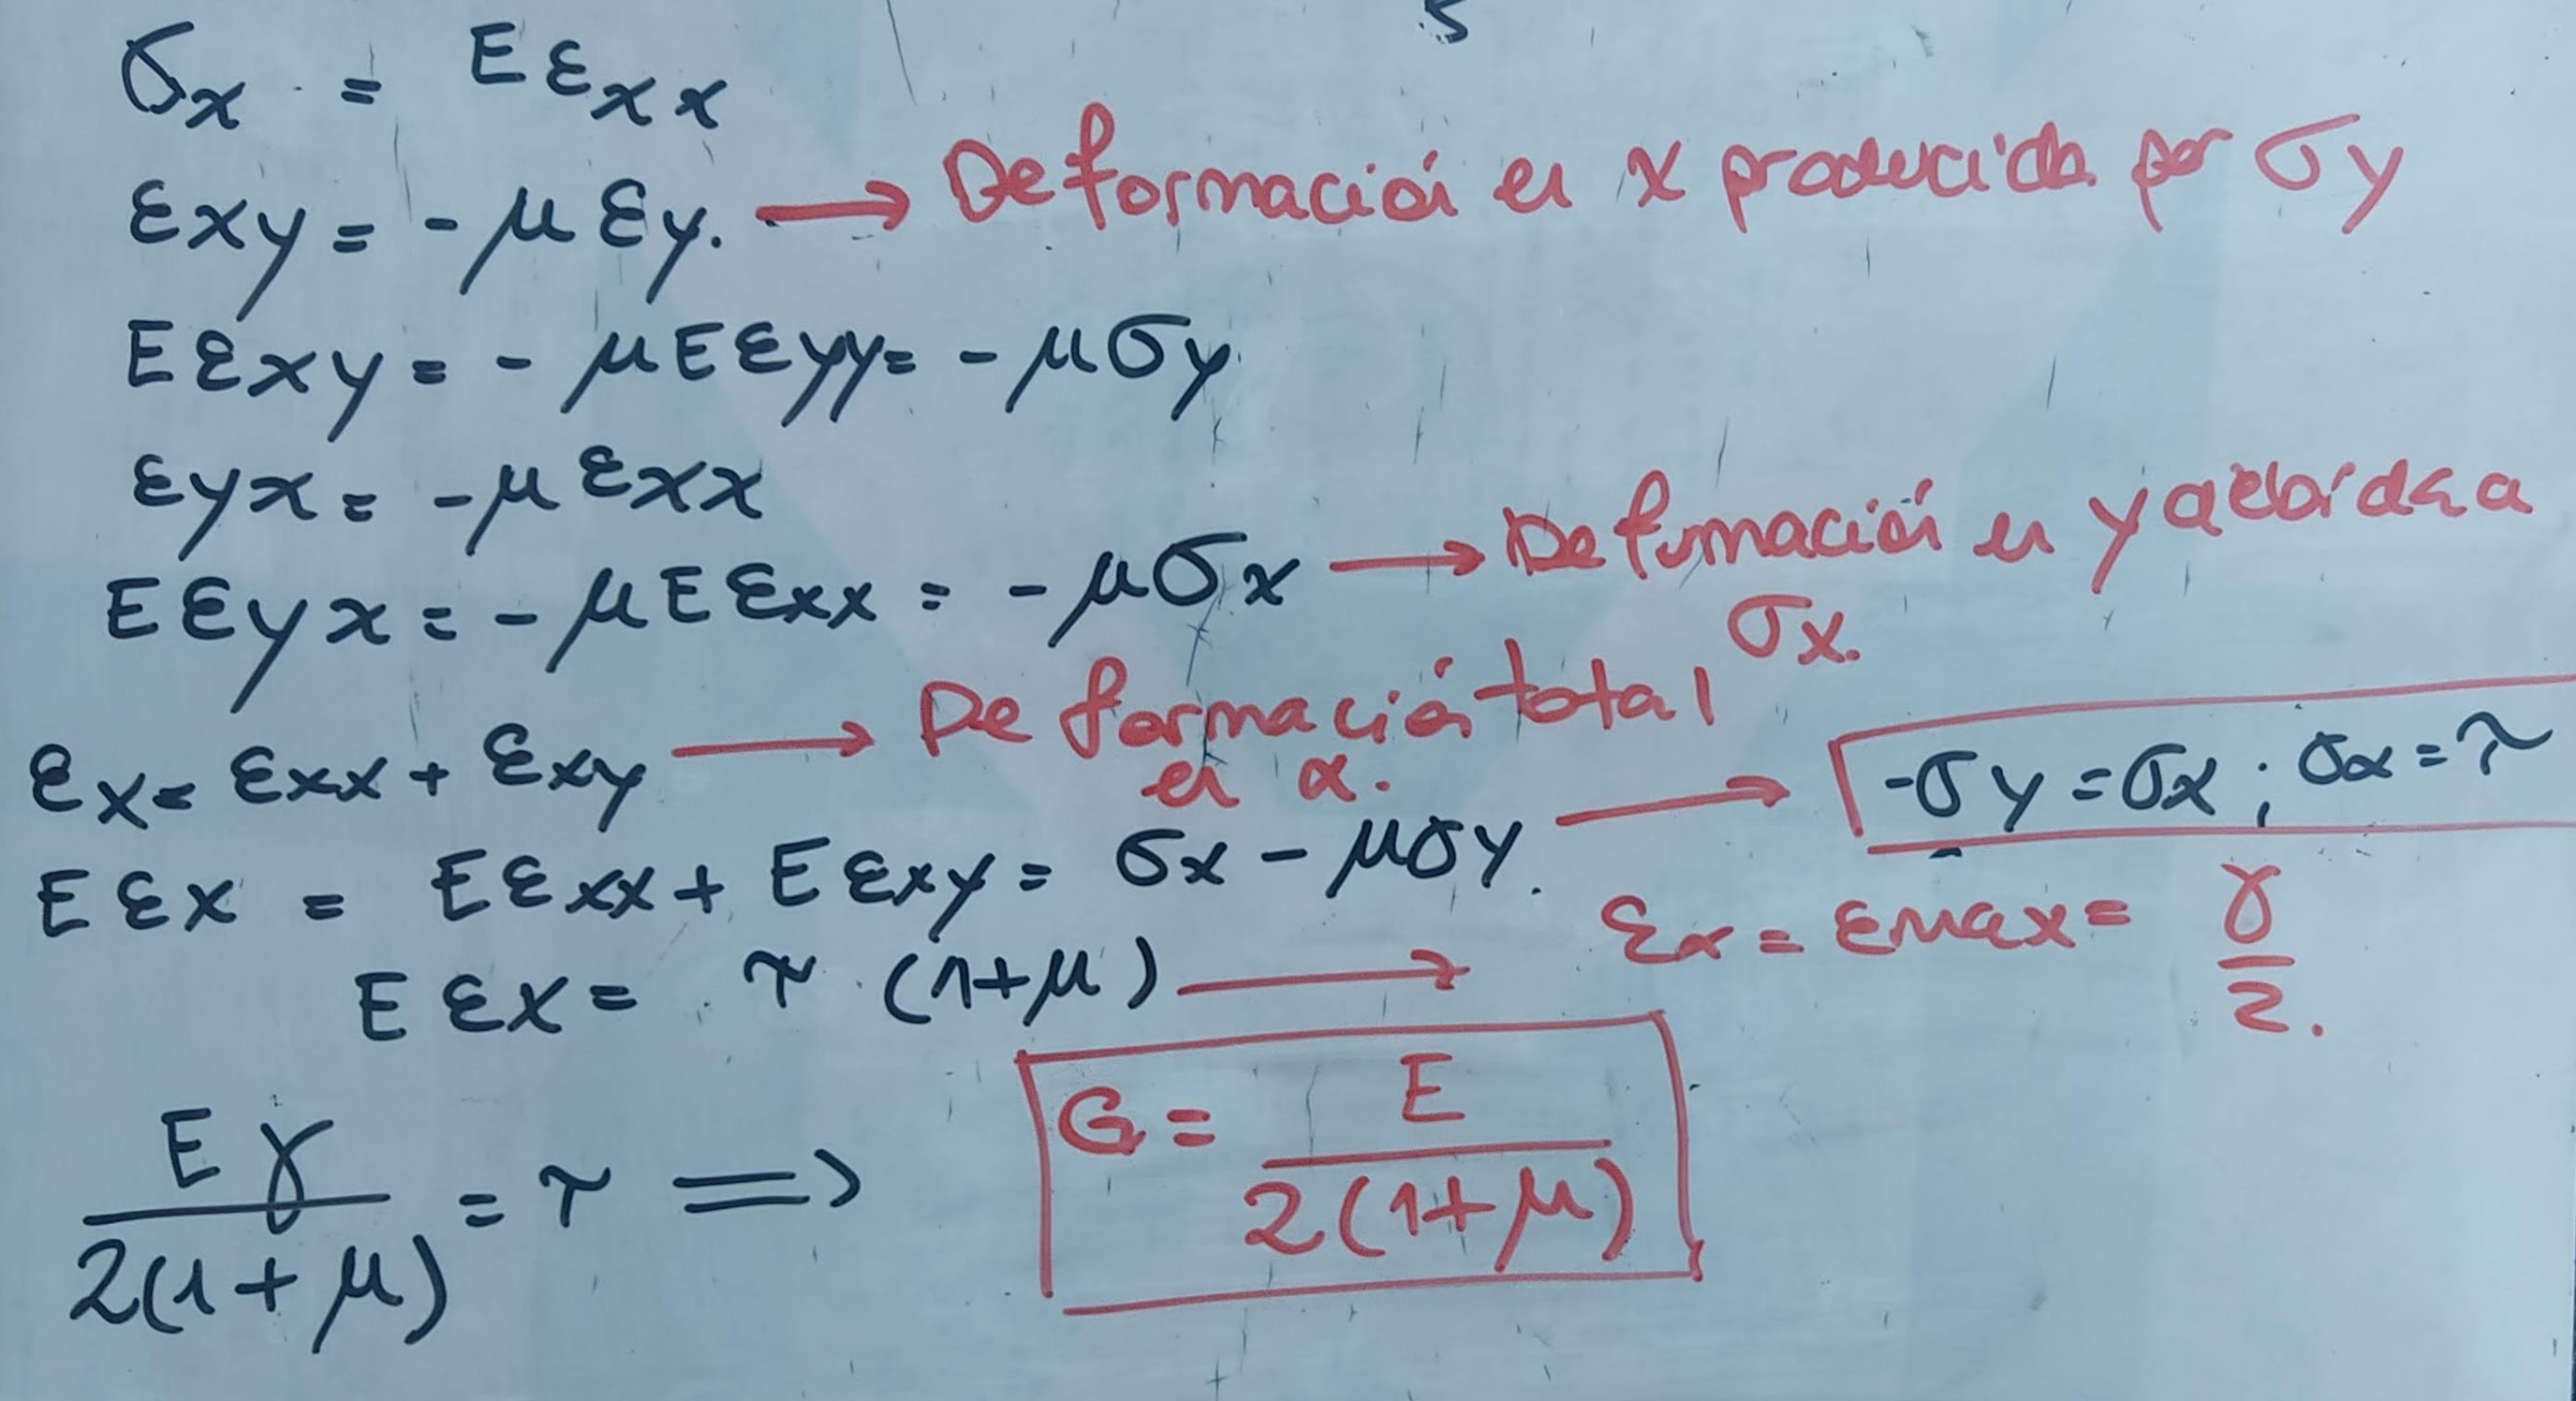 σx = E εxx
εxy = -μ εy. → Deformación en x producida por σy
E εxy = - μ E εyy = - μ σy
εyx = -μ εxx
E εyx = - μ E εxx = - μ σx → Deformación en y debida a
σx.
εx = εxx + εxy → Deformación total
en x.
E εx = E εxx + E εxy = σx - μσy. → -σy = σx ; σx = τ
E εx = τ (1+μ) → εx = εmax = γ/2.
E γ / 2(1+μ) = τ ⟹ G = E / 2(1+μ)